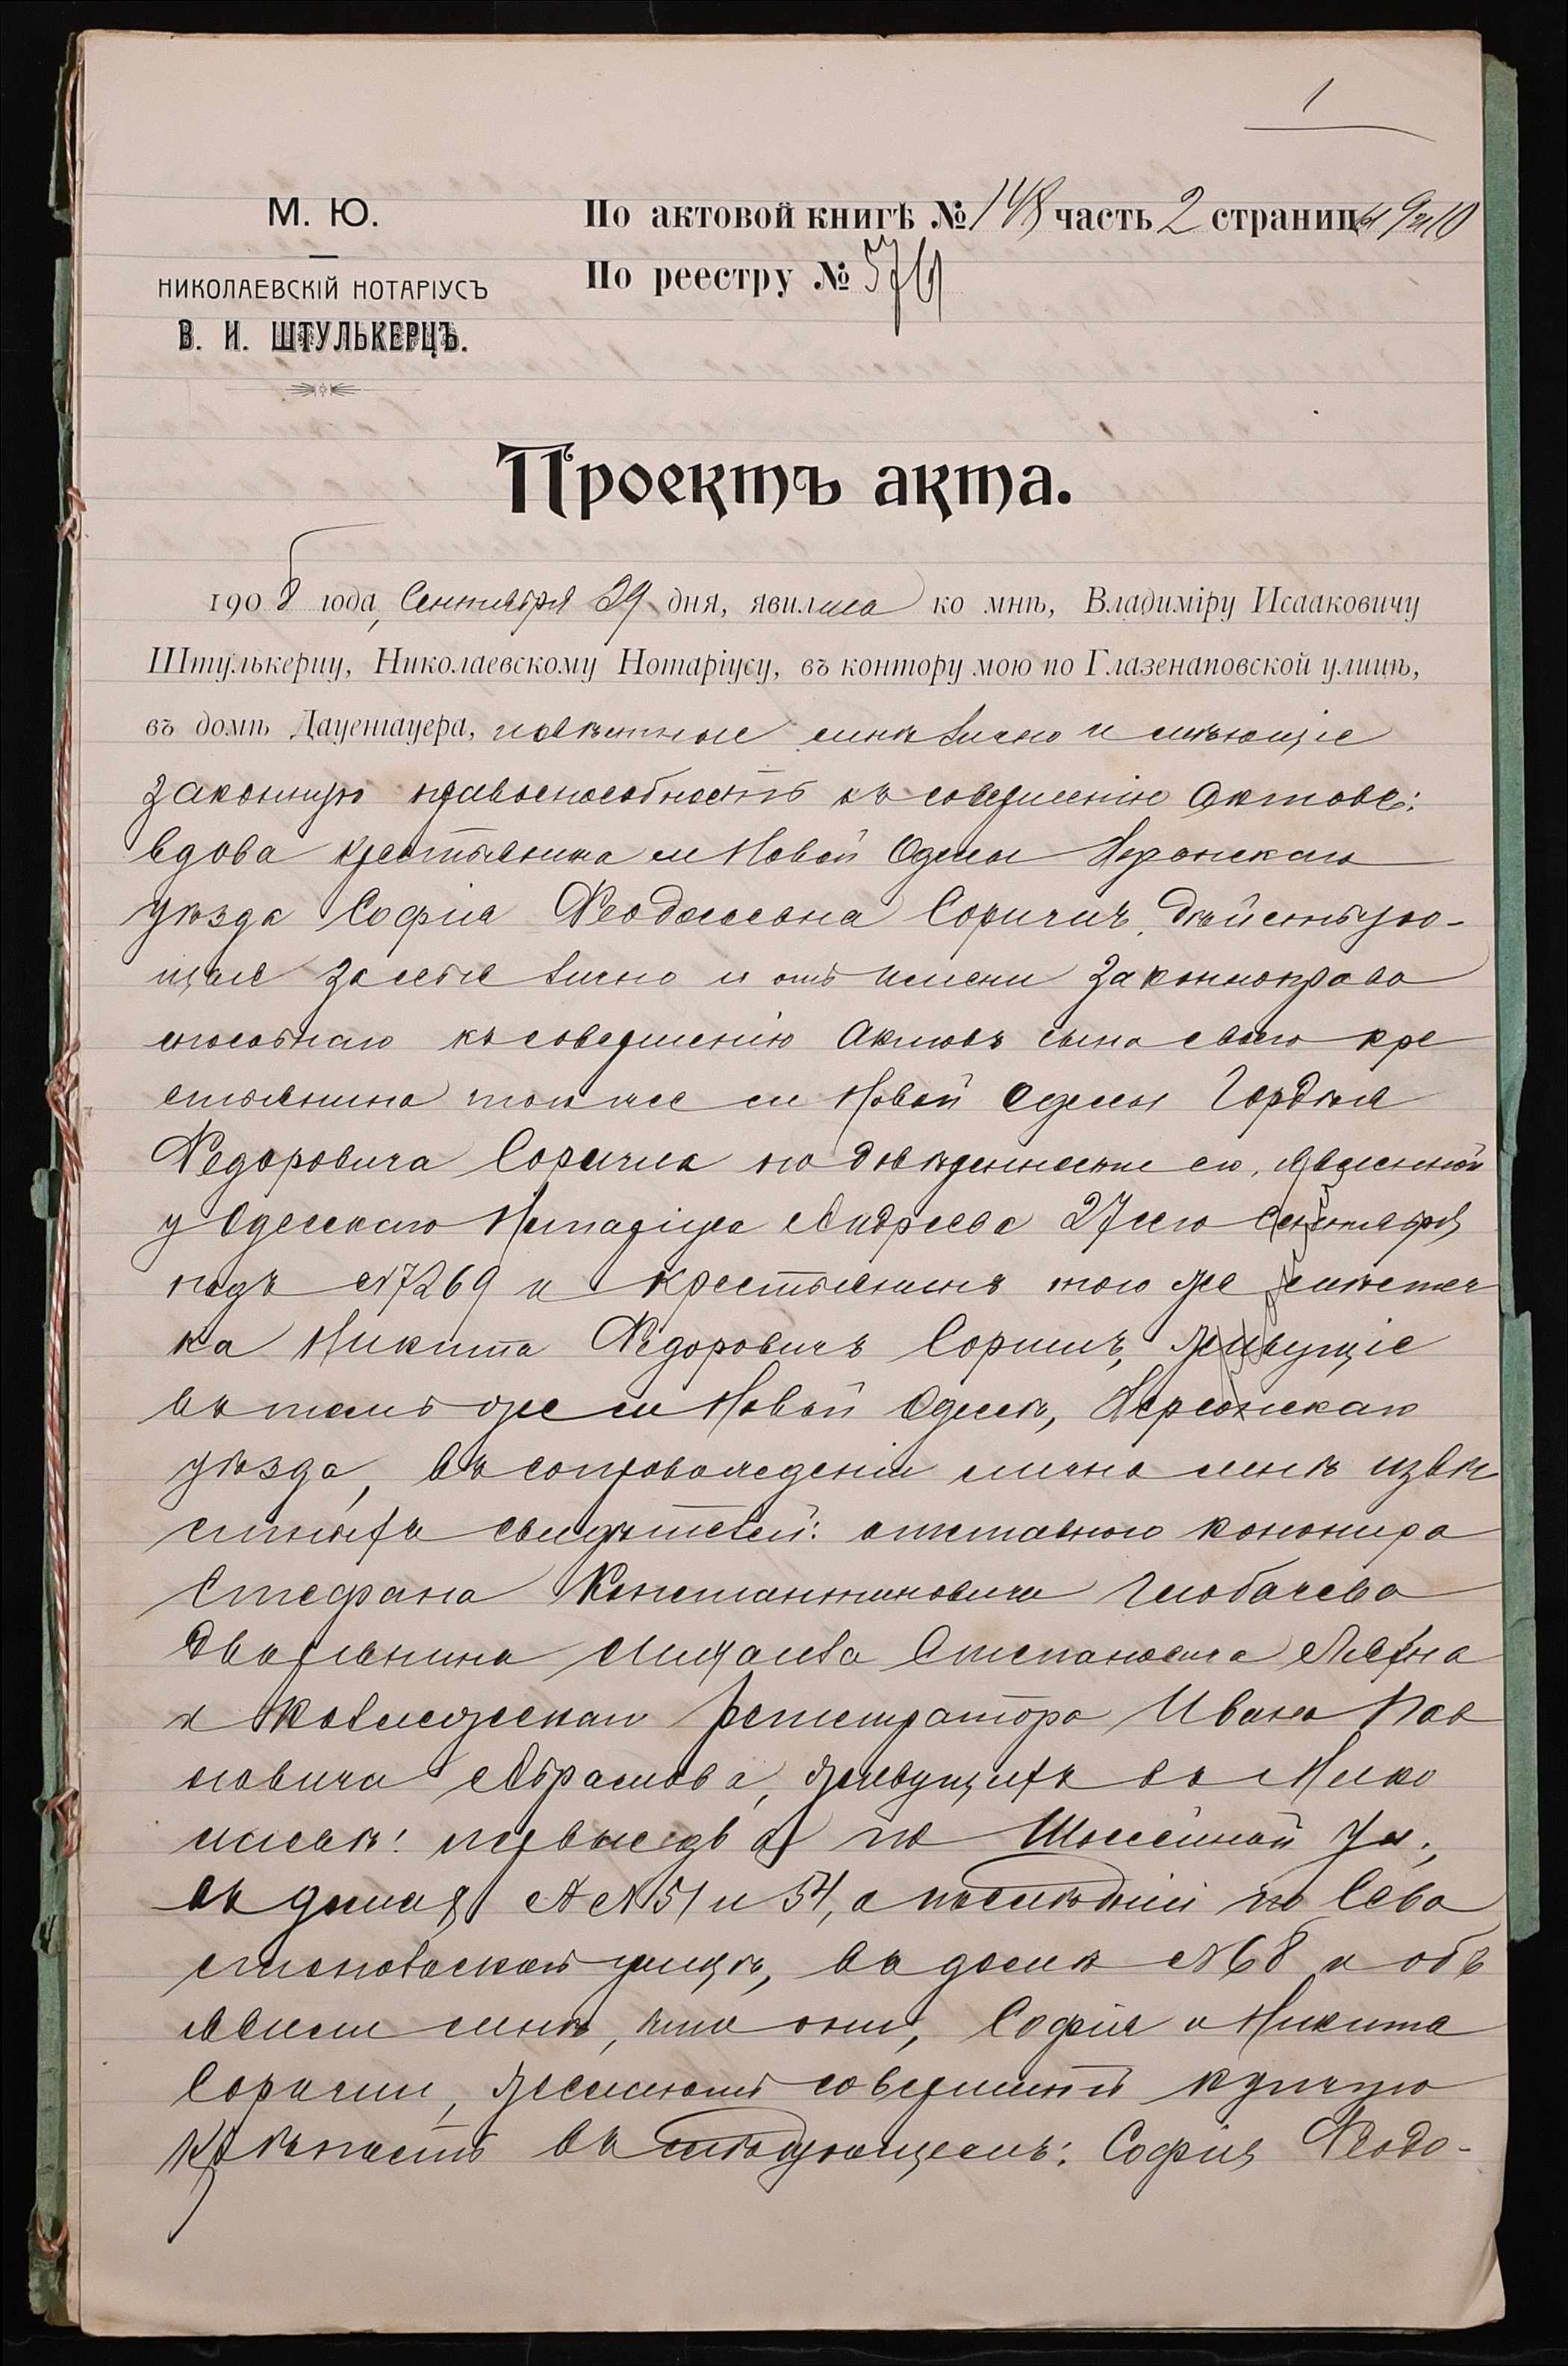 1
М. Ю.
НИКОЛАЕВСКІЙ НОТАРІУСЪ
В. И. ШТУЛЬКЕРЦЪ.
По актовой книгѣ № 148 часть 2 страницы 9 и 10
По реестру №
Проектъ акта.
1908 года, Сентября 29 дня, явились ко мнѣ, Владиміру Исааковичу
Штулькерцу, Николаевскому Нотаріусу, въ контору мою по Глазенаповской улицѣ,
въ домѣ Дауенгауера, извѣстные мнѣ лично и имѣющіе
законную правоспособность къ совершенію актовъ:
вдова крестьянина м Новой Одессы Херсонскаго
уѣзда Софія Феодосьевна Соричъ, дѣйствую-
щая за себя лично и отъ имени законноправо
способнаго къ совершенію актовъ сына своего кре
стьянина того же м Новой Одессы Гордѣя
Федоровича Сорича по довѣренности его, явленной
у Одесскаго Нотаріуса Андреева 27 сего Сентября
подъ №7269 и крестьянинъ того же мѣстеч
ка Никита Федоровичъ Соричъ, живущіе
въ томъ же м Новой Одессѣ, Херсонскаго
уѣзда, въ сопровожденіи лично мнѣ извѣ
стныхъ свидѣтелей: отставного канонира
Стефана Константиновича
дворянина Михаила Степановича
и Коллежскаго регистратора Ивана Пав
ловича Абрамова, живущихъ въ Нико
лаевѣ: первые два по Шоссейной ул.,
въ домахъ №№51 и 54, а послѣдній по Сева
стопольской улицѣ, въ домѣ №68 и объ
явили мнѣ, что они, Софія и Никита
Соричи, желаютъ совершить купчую
крѣпость въ слѣдующемъ: Софія Феодо-